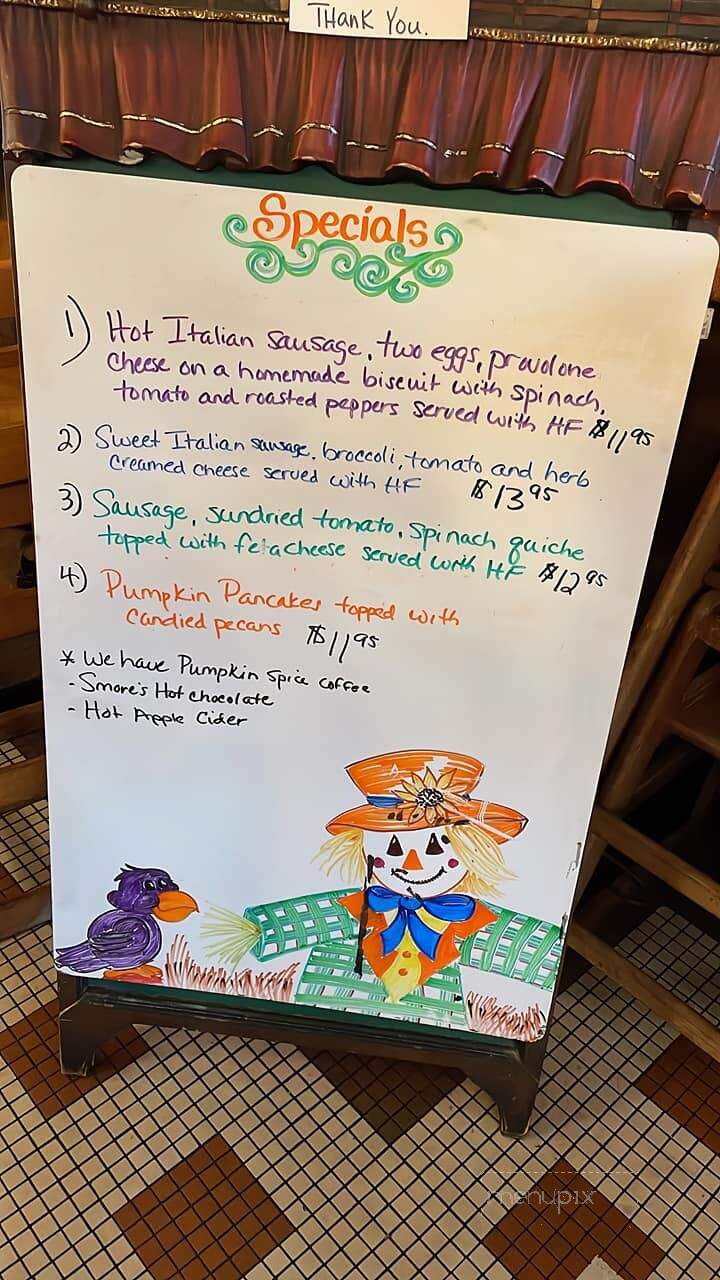 THANK YOU.
Specials
1) Hot Italian sausage, two eggs, provolone
cheese on a homemade biscuit with spinach,
tomato and roasted peppers served with HF $11.95
2) Sweet Italian sausage, broccoli, tomato and herb
creamed cheese served with HF $13.95
3) Sausage, sundried tomato, spinach quiche
topped with feta cheese served with HF $12.95
4) Pumpkin Pancakes topped with
candied pecans $11.95
* We have Pumpkin Spice coffee
- Smore's Hot chocolate
- Hot Apple Cider
menupix